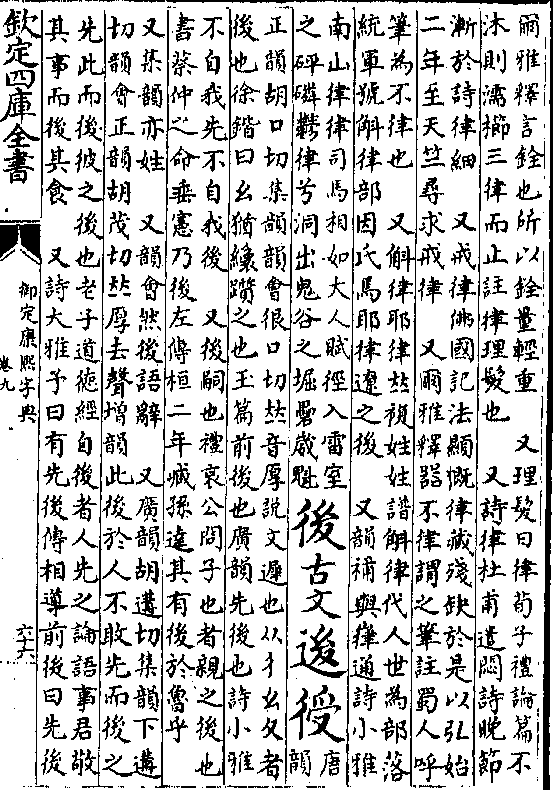 爾雅釋言銓也所以銓量輕重 又理髮曰律荀子禮論篇不
沐則濡櫛三律而止註律理髮也 又詩律杜甫遣悶詩晚節
漸於詩律細 又戒律佛國記法顯慨律藏殘缺於是以弘始
二年至天竺尋求戒律 又爾雅釋器不律謂之筆註蜀人呼
筆為不律也 又斛律耶律𠀤複姓姓譜斛律代人世為部落
統軍號斛律部因氏焉耶律遼之後 又韻補與通詩小雅
南山律律司馬相如大人賦徑入雷室
之砰磷鬱律兮洞出鬼谷之堀礨崴魁
後古文 唐韻
正韻胡口切集韻韻會很口切𠀤音厚說文遲也从彳幺夂者
後也徐鍇曰幺猶纏躓之也玉篇前後也廣韻先後也詩小雅
不自我先不自我後 又後嗣也禮哀公問子也者親之後也
書蔡仲之命垂憲乃後左傳桓二年臧孫達其有後於魯乎
又集韻亦姓 又韻會然後語辭 又廣韻胡遘切集韻下遘
切韻會正韻胡茂切𠀤厚去聲增韻此後於人不敢先而後之
先此而後彼之後也老子道德經自後者人先之論語事君敬
其事而後其食 又詩大雅予曰有先後傳相導前後曰先後
欽定四庫全書
御定康熙字典
卷九
六十六